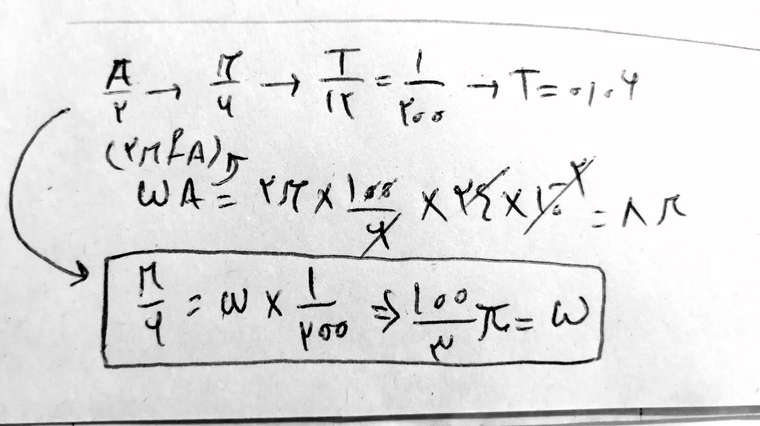 A/۲ → π/۶ → T/۱۲ = ۱/۲۰۰ → T = ۰/۰۶
(۲πfA)
ωA = ۲π × ۱۰۰/۶ × ۲۴ × ۱۰⁻² = ۸π
π/۶ = ω × ۱/۲۰۰ ⇒ ۱۰۰/۳ π = ω